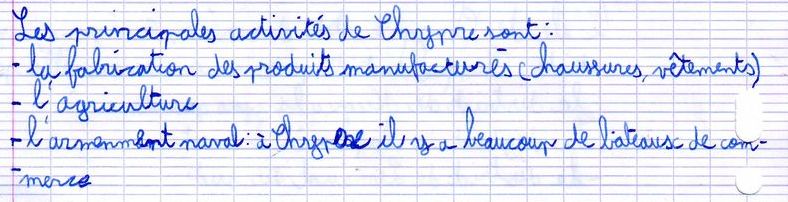 Les principales activités de Chrypre sont :
- la fabrication des produits manufacturés (chaussures, vêtements)
- l'agriculture
- l'armenment naval : à Chrypre il y a beaucoup de bateaux de com-
- merce